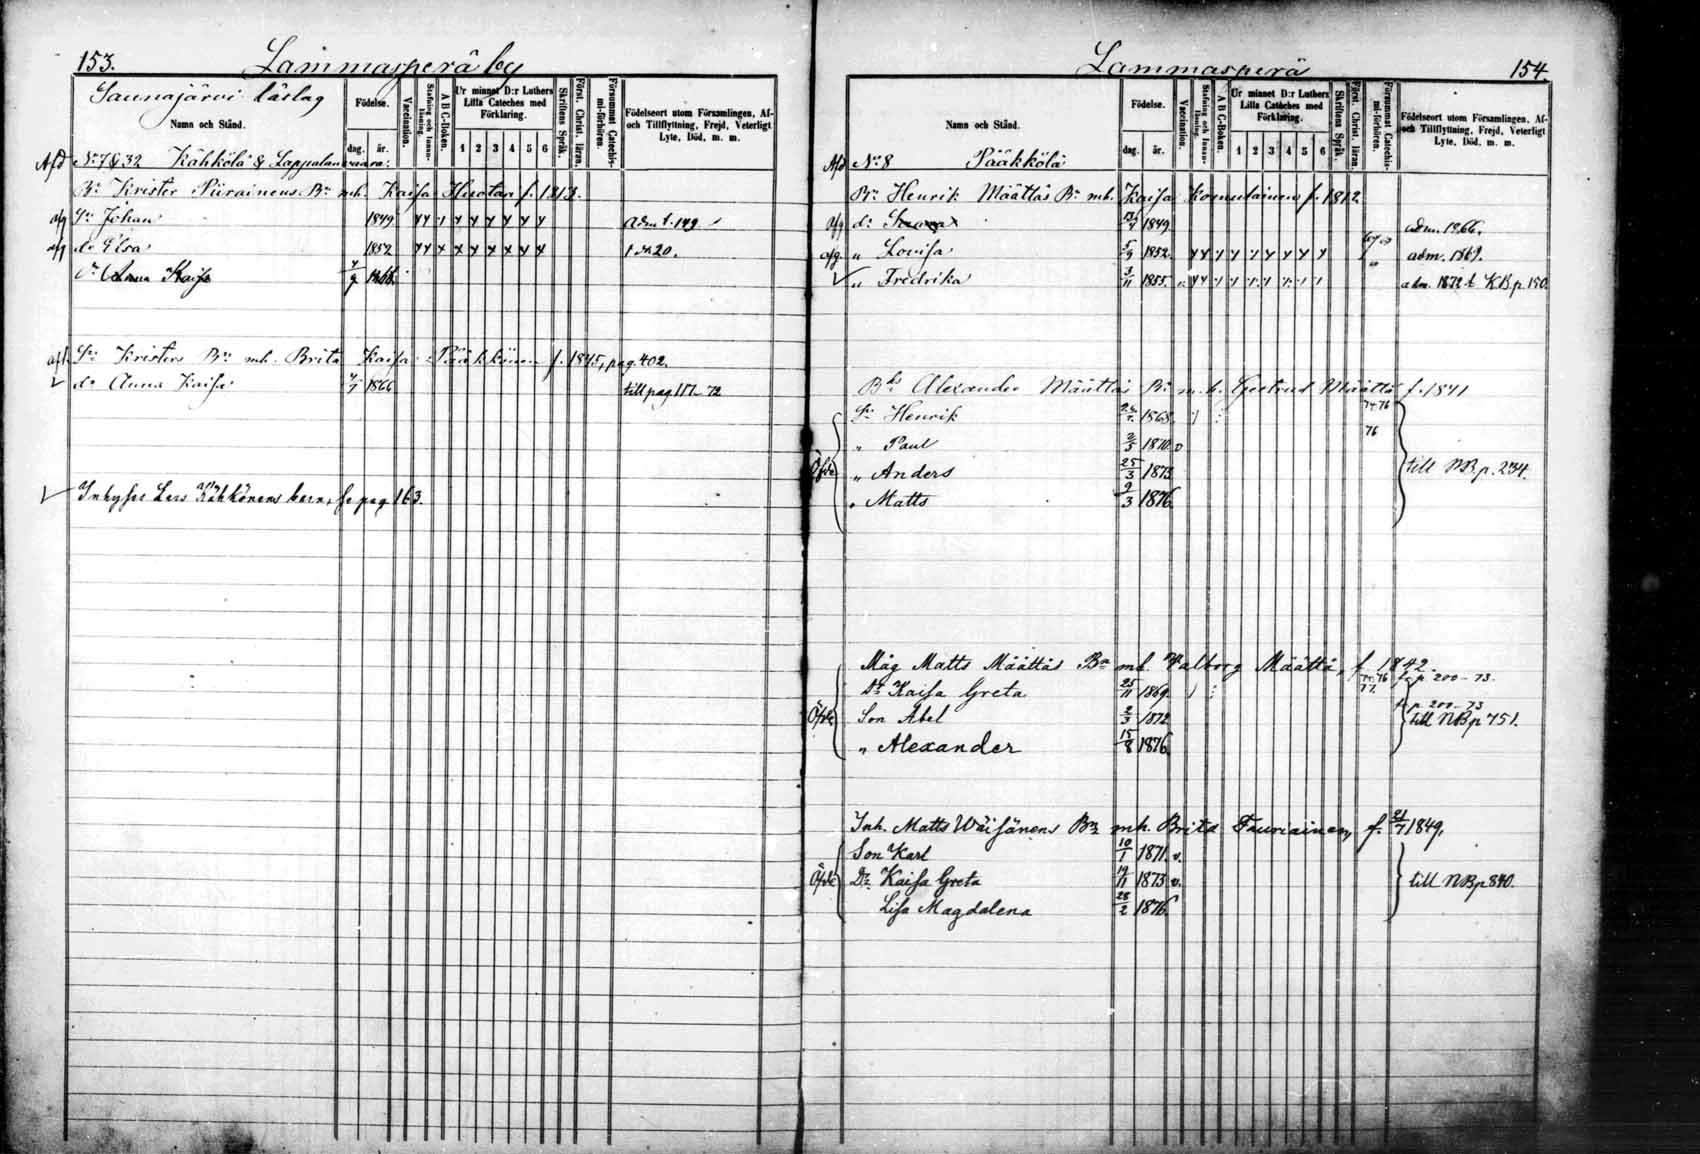 153. Lammasperä by
Saunajärvi läslag
Namn och Stånd.
Födelse.
dag. år.
Vaccination.
Stafning och Innanläsning.
A B C-Boken.
Ur minnet D:r Luthers Lilla Cateches med Förklaring.
1 2 3 4 5 6
Skriftens Språk.
Först. Christ. läran.
Försummat Catechismi-förhören.
Födelseort utom Församlingen, Af- och Tillflyttning, Frejd, Veterligt Lyte, Död, m. m.
Afd No 7 & 32 Kähkölä & Lappalanvaara:
Bn Krister Piirainens Bn mh. Kaisa Huotari f. 1813.
afg Sn Johan 1849 adm t. 149
afg dr Elsa 1852
dr Anna Kaisa
Sn Kristers Bn mh. Brita Kaisa Pääkkönen f. 1845, pag. 402.
dr Anna Kaisa 1866 till pag 151 72
Inhyses Lars Kähkönens barn, se pag 163.
Lammasperä 154.
Namn och Stånd.
Födelse.
dag. år.
Vaccination.
Stafning och Innanläsning.
A B C-Boken.
Ur minnet D:r Luthers Lilla Catéches med Förklaring.
1 2 3 4 5 6
Skriftens Språk.
Först. Christ. läran.
Försummat Catechismi-förhören.
Födelseort utom Församlingen, Af- och Tillflyttning, Frejd, Veterligt Lyte, Död, m. m.
Afd No 8 Pääkkölä
Bn Henrik Määttäs Bn mh. Kaisa Komulainen f. 1812
afg dr 1849 adm. 1866.
afg. " Lovisa 5/9 1852 adm. 1869.
" Fredrika 3/11 1855 adm. 1872 t KB p. 150.
Alexander Määttäs Bn m.h. Gertrud Määttä f. 1841
Sn Henrik 1868 74 76
" Paul 2/5 1870 v 76
Öfde " Anders 25/3 1873 till NB p. 234.
" Matts 9/3 1876
Måg Matts Määttäs Bn mh. Walborg Määttä, f. 1842.
Dr Kaisa Greta 25/11 1869 fr p 200-73.
p 200-73
Öfde Son Abel 2/3 1872 till NB p 751.
" Alexander 15/8 1876
Inh. Matts Wäisänens Bn mh. Brita Tauriainen, f. 21/7 1849.
Son Karl 10/1 1871. v.
Öfde Dr Kaisa Greta 14/11 1873 v. till NB p 840.
Lisa Magdalena 28/2 1876